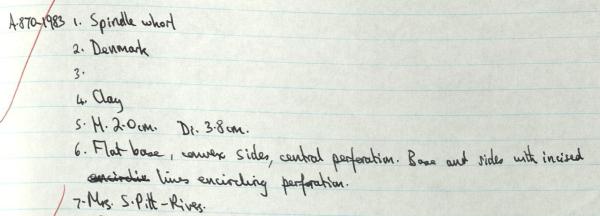 A.870-1983 1. Spindle whorl
2. Denmark
3.
4. Clay
5. H. 2.0cm. Di. 3.8cm.
6. Flat base, convex sides, central perforation. Base and sides with incised
encirclin lines encircling perforation.
7. Mrs. S. Pitt-Rivers.